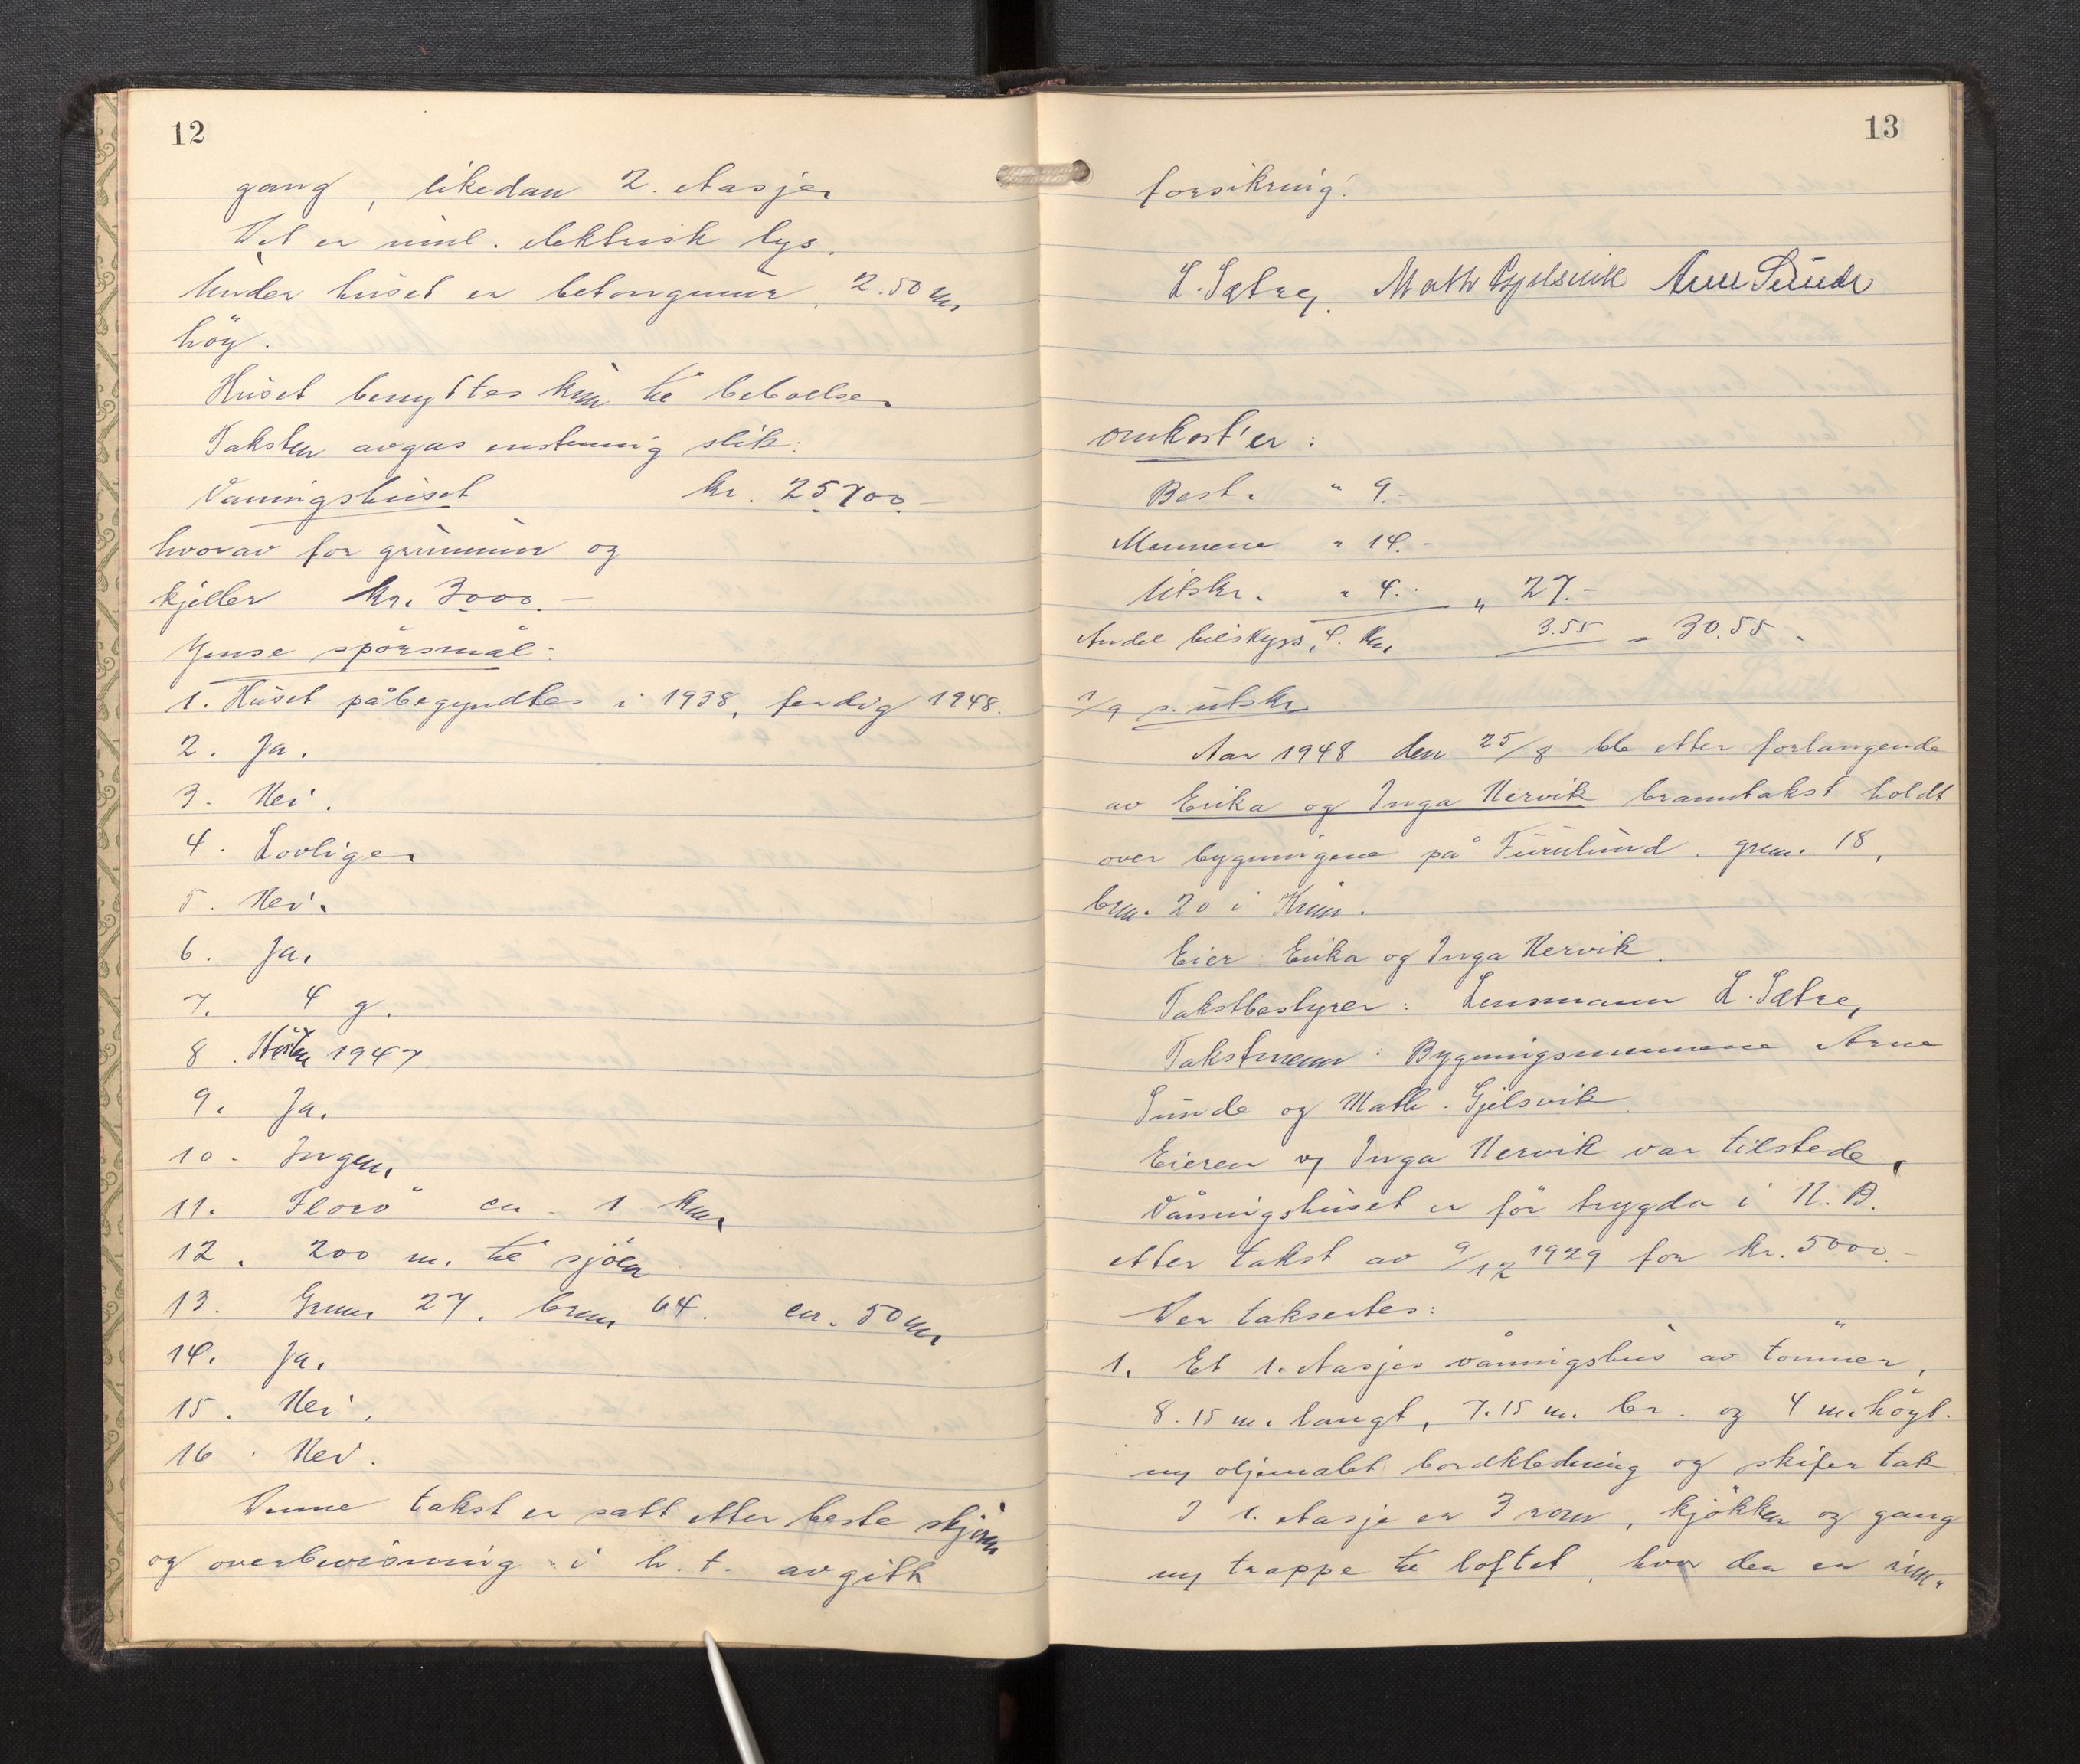 12
gang, likedan 2. etasje.
Det er innl. elektrisk lys.
Under huset er betongmur, 2.50 m.
høg.
Huset benyttes kun til beboelse.
Taksten avgas enstemmig slik:
Vaningshuset kr. 25700.-
hvorav for grunmur og
kjeller kr. 3000.-
Ymse spørsmål:
1. Huset påbegyndtes i 1938, ferdig 1948.
2. Ja.
3. Nei.
4. Lovlige.
5. Nei.
6. Ja.
7. 4 g.
8. Høsten 1947.
9. Ja.
10. Ingen.
11. Florø ca. 1 km.
12. 200 m. til sjøen
13. Gnm. 27. bnm. 64. ca. 50 m.
14. Ja.
15. Nei.
16. Nei.
Denne takst er satt etter beste skjønn
og overbevisning i h. t. avgitt
13
forsikring.
L. Sætre. Math Gjelsvik Arne Sunde
Omkost'er:
Best. " 9.-
Mennene " 14.-
Utskr. " 4.- " 27.-
Andel bilskyss, 4. km. 3.55 = 30.55.
1/9 s. utskr.
Aar 1948 den 25/8 ble etter forlangende
av Erika og Inga Nervik branntakst holdt
over bygningene på Furulund. gnm. 18,
bnm. 20 i Kinn.
Eier: Erika og Inga Nervik.
Takstbestyrer: Lensmann L. Sætre,
Takstmenn: Bygningsmennene Arne
Sunde og Math. Gjelsvik.
Eieren v/ Inga Nervik var tilstede.
Våningshuset er før trygda i N. B.
etter takst av 9/12 1929 for kr. 5000.-
Der takseertes:
1. Et 1. etasjes våningshus av tømmer,
8.15 m. langt, 7.15 m. br. og 4 m. høgt.
ny oljemalet bordkledning og skifer tak.
I 1. etasje er 3 rom, kjøkken og gang
ny trappe til loftet, hvor der er inn-